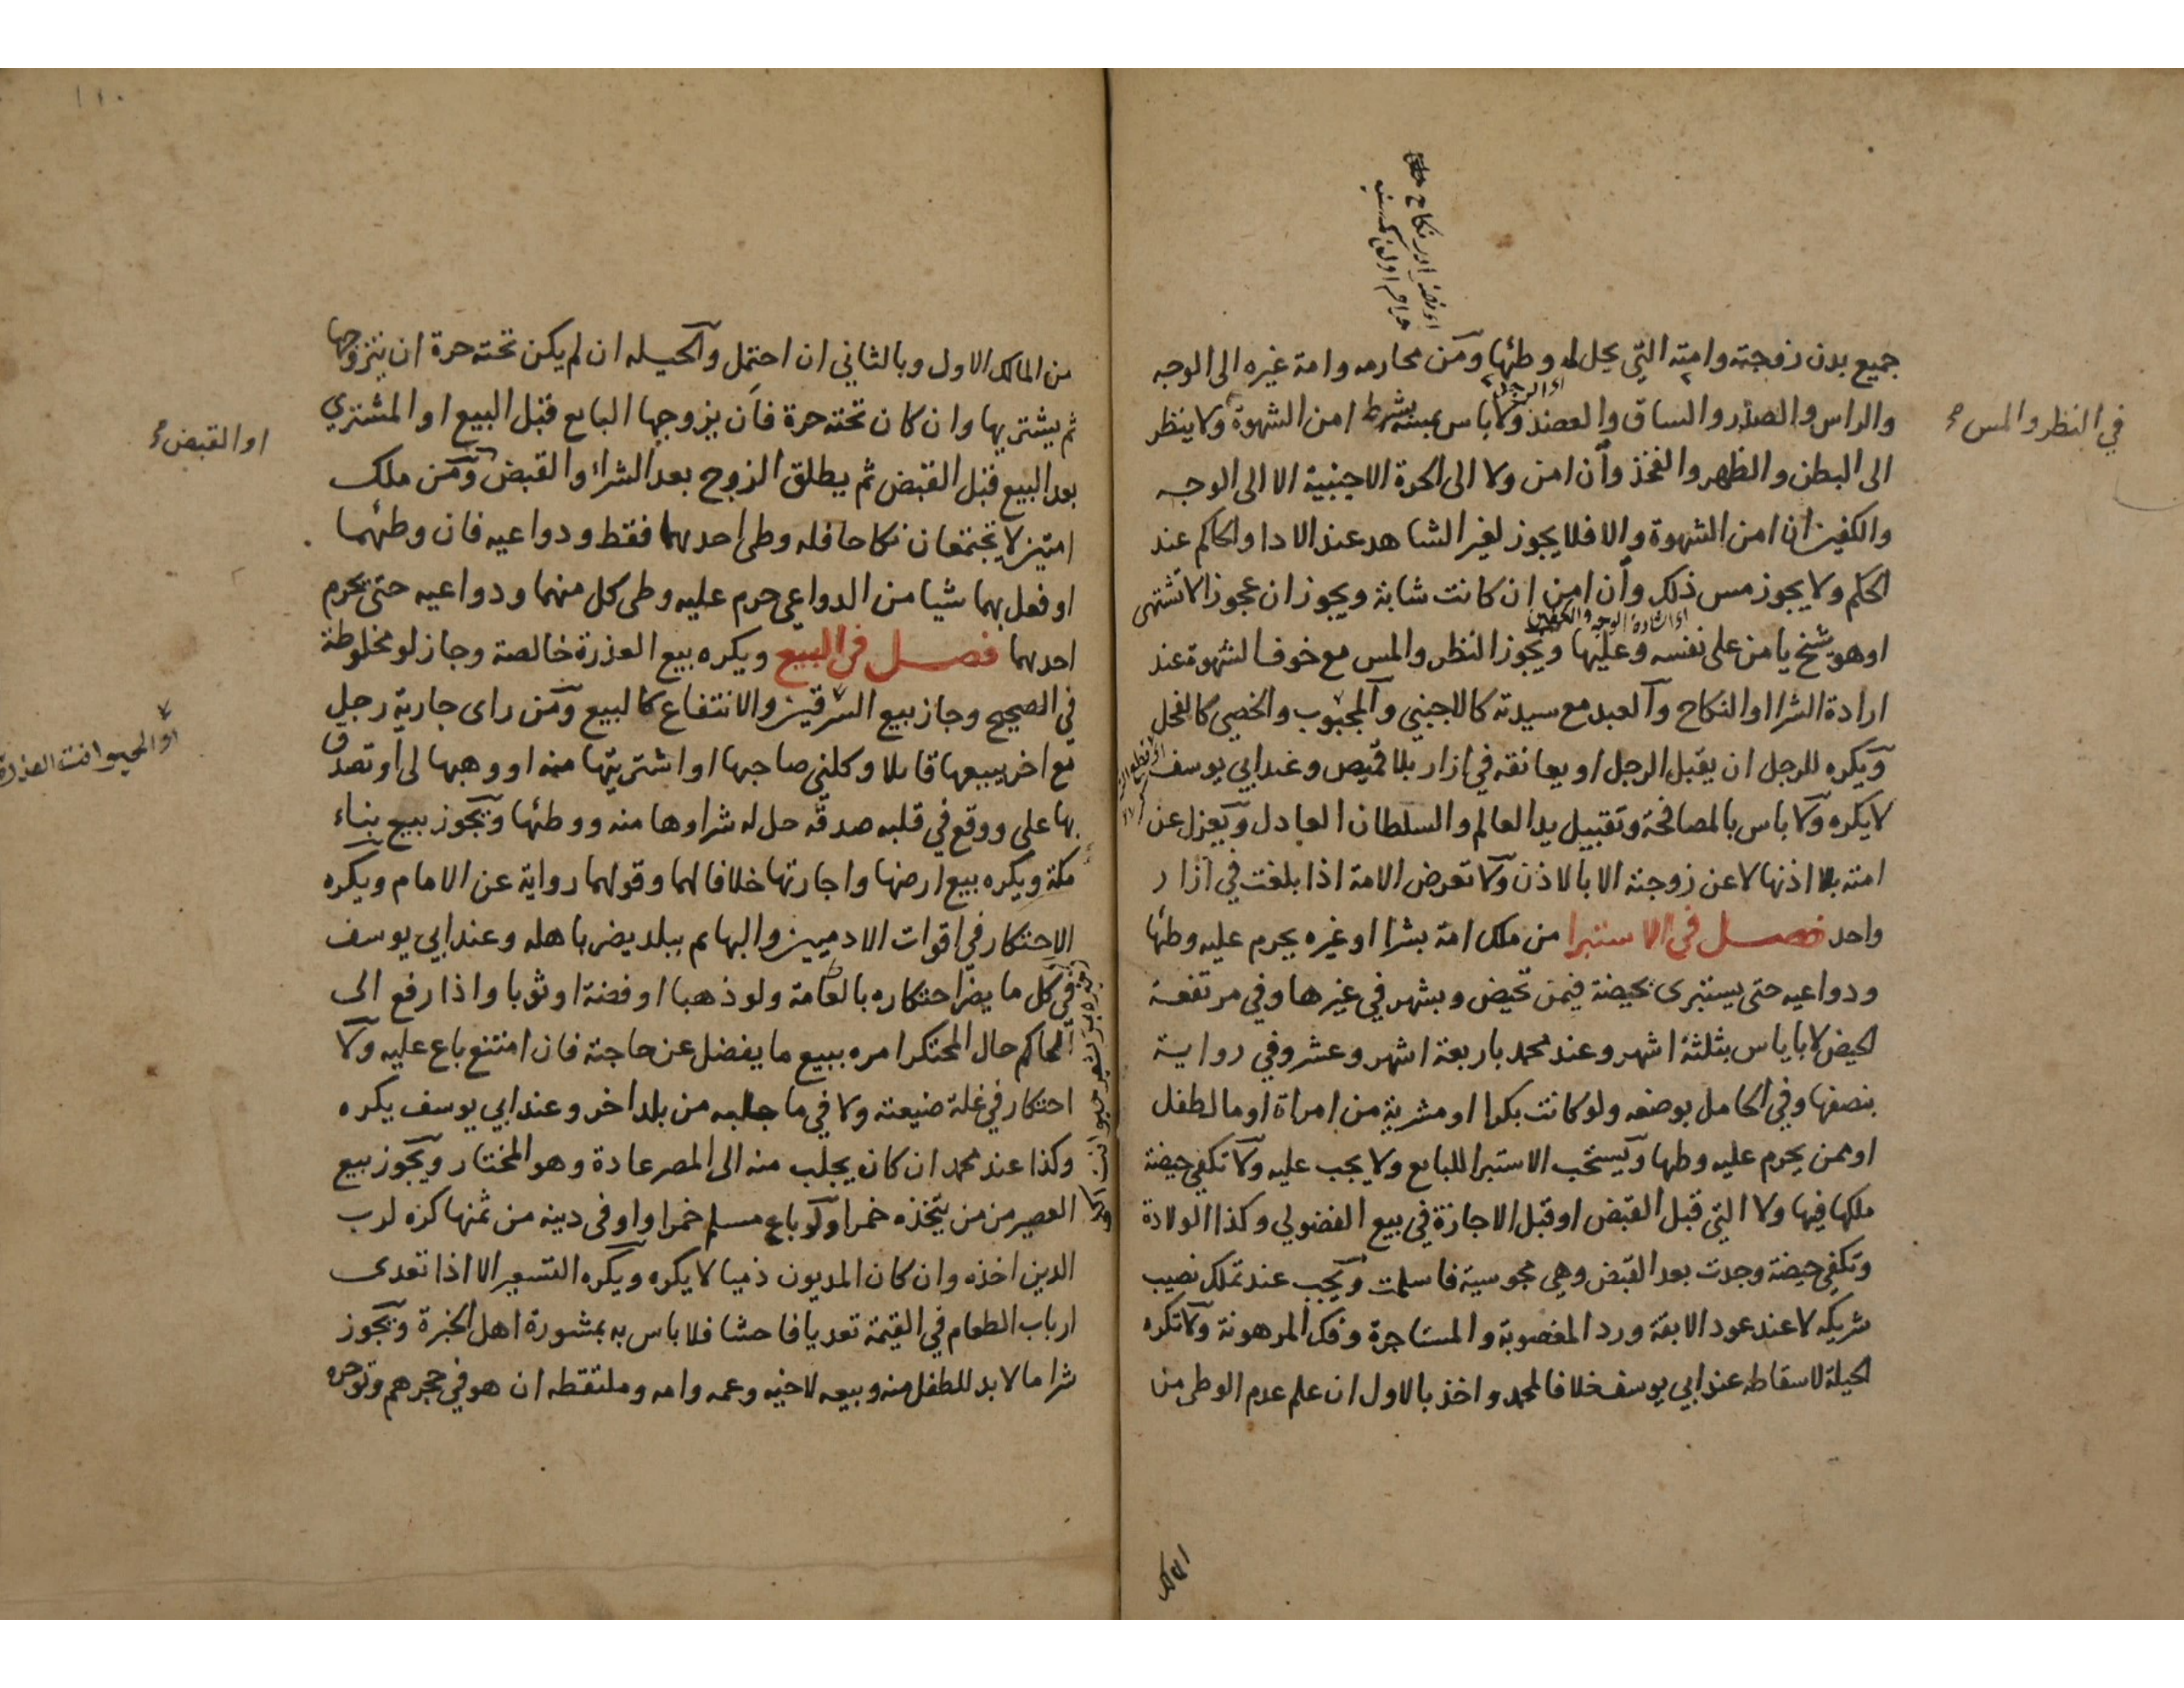 جميع بدن زوجته وامته التي يحل له وطئها ومن محارمه وامة غيره الى الوجه
والراس والصدر والساق والعضد ولا باس بمسه بشرط امن الشهوة ولا ينظر
في النظر والمس
الى البطن والظهر والفخذ وان امن ولا الى الحرة الاجنبية الا الى الوجه
والكفين ان امن الشهوة والا فلا يجوز لغير الشاهد عند الادا والحاكم عند
الحكم ولا يجوز مس ذلك وان امن ان كانت شابة ويجوز ان عجوز الا تشتهى
او هو شيخ يامن على نفسه وعليها ويجوز النظر والمس مع خوف الشهوة عند
ارادة الشرا او النكاح والعبد مع سيدته كالاجنبي والمجبوب والخصي كالفحل
ويكره للرجل ان يقبل الرجل او يعانقه في ازار بلا قميص وعند ابي يوسف
لا يكره ولا باس بالمصافحة وتقبيل يد العالم والسلطان العادل ويعزل عن
امته بلا اذنها لا عن زوجته الا بالاذن ولا تعرض الامة اذا بلغت في ازار
واحد فصل في الاستبرا من ملك امة بشرا او غيره يحرم عليه وطئها
ودواعيه حتى يستبرى بحيضة فيمن تحيض وبشهر في غيرها وفي مرتفعة
الحيض لا باياس بثلثة اشهر وعند محمد باربعة اشهر وعشر وفي رواية
بنصفها وفي الحامل بوضعه ولو كانت بكرا او مشرية من امراة او مال طفل
او ممن يحرم عليه وطها ويستحب الاستبرا للبايع ولا يجب عليه ولا تكفي حيضة
ملكها فيها ولا التي قبل القبض او قبل الاجازة في بيع الفضولي وكذا الولادة
وتكفي حيضة وجدت بعد القبض وهي مجوسية فاسلمت ويجب عند تملك نصيب
شريكه لا عند عود الابقة ورد المغصوبة والمستاجرة وفك المرهونة ولا تكره
الحيلة لاسقاطه عند ابي يوسف خلافا لمحمد واخذ بالاول ان علم عدم الوطى من
المالك
١١٠
من المالك الاول وبالثاني ان احتمل والحيله ان لم يكن تحته حرة ان يتزوجها
ثم يشتريها وان كان تحته حرة فان يزوجها البايع قبل البيع او المشتري
او القبض
بعد البيع قبل القبض ثم يطلق الزوج بعد الشراء والقبض ومن ملك
امتين لا تجتمعان نكاحا فله وطى احدهما فقط ودواعيه فان وطئهما
او فعل بهما شيا من الدواعي حرم عليه وطى كل منهما ودواعيه حتى يحرم
احدهما فصل في البيع ويكره بيع العذرة خالصة وجاز لو مخلوطة
في الصحيح وجاز بيع السرقين والانتفاع كالبيع ومن راى جارية رجل
مع اخر يبيعها قايلا وكلني صاحبها او اشتريتها منه او وهبها لى او تصدق
بها على ووقع في قلبه صدقه حل له شراوها منه ووطئها ويجوز بيع بناء
مكة ويكره بيع ارضها واجارتها خلافا لهما وقولهما رواية عن الامام ويكره
الاحتكار في اقوات الادميين والبهايم ببلد يضر باهله وعند ابي يوسف
في كل ما يضر احتكاره بالعامة ولو ذهبا او فضة او ثوبا واذا رفع الى
الحاكم حال المحتكر امره ببيع ما يفضل عن حاجته فان امتنع باع عليه ولا
احتكار في غلة ضيعته ولا في ما جلبه من بلد اخر وعند ابي يوسف يكره
وكذا عند محمد ان كان يجلب منه الى المصر عادة وهو المختار ويجوز بيع
العصير من من يتخذه خمرا ولو باع مسلم خمرا واوفى دينه من ثمنها كره لرب
الدين اخذه وان كان المديون ذميا لا يكره ويكره التسعير الا اذا تعدى
ارباب الطعام في القيمة تعديا فاحشا فلا باس به بمشورة اهل الخبرة ويجوز
شرا ما لا بد للطفل منه وبيعه لاخيه وعمه وامه وملتقطه ان هو في حجرهم وتوجره